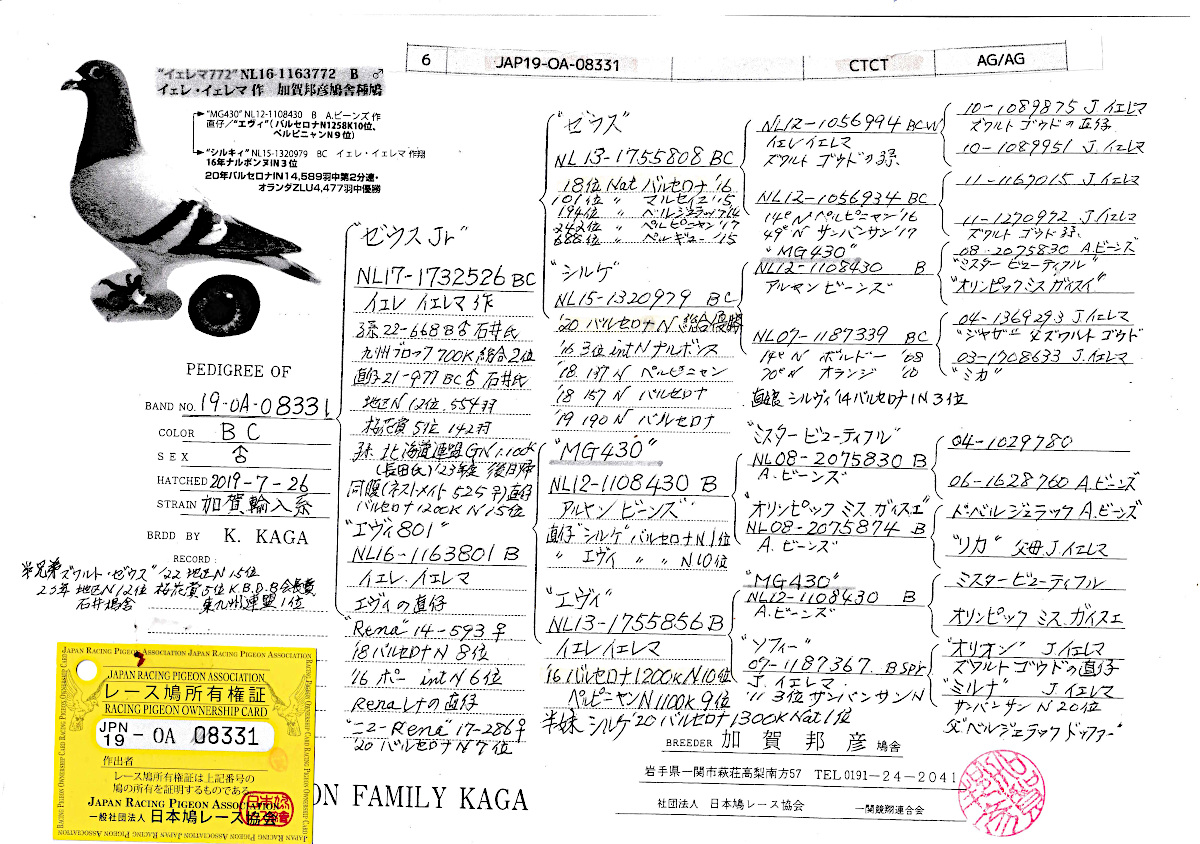 6 JAP19-OA-08331 CTCT AG/AG
"イェレマ772" NL16-1163772 B ♂
イェレ・イェレマ 作 加賀邦彦鳩舎種鳩
"MG430" NL12-1108430 B A.ビーンズ 作
直仔/"エヴィ"(バルセロナN1258K10位、
ペルピニャンN9位)
"シルキィ" NL15-1320979 BC イェレ・イェレマ 作翔
16年ナルボンヌIN3位
20年バルセロナIN14,589羽中第2分速・
オランダZLU4,477羽中優勝
PEDIGREE OF
BAND NO. 19-OA-08331
COLOR BC
SEX ♂
HATCHED 2019-7-26
STRAIN 加賀輸入系
BRDD BY K. KAGA
RECORD:
半兄弟 ズワルト・ゼウス"'22 地区N 15位
23年 地区N12位 桜花賞5位 K.B.D.B会長賞
石井鳩舎 東九州連盟1位
"ゼウスJr"
NL17-1732526 BC
イェレ イェレマ 作
孫 22-668 B♂ 石井氏
九州ブロック 700K 総合2位
直仔 21-977 BC♂ 石井氏
地区N12位 554羽
桜花賞5位 142羽
孫 北海道連盟GN1.10
(長田氏)'23年度 後日帰
同腹(ネストメイト525号)直仔
バルセロナ1200K N15位
"エヴィ801"
NL16-1163801 B
イェレ.イェレマ
エヴィの直仔
"Rena" 14-593 ♀
'18 バルセロナ N 8位
'16 ポー int N 6位
Rena レナの直仔
"ニュー Rena" 17-286♀
'20 バルセロナ N 7位
"ゼウス"
NL13-1755808 BC
18位 Nat バルセロナ '16
101位 〃 マルセイユ '15
194位 〃 ベルジュラック '14
242位 〃 ペルピニャン '17
688位 〃 ペルギュー '15
"シルゲ"
NL15-1320979 BC
'20 バルセロナ N 総合優勝
'16 3位 int N ナルボンヌ
'18. 137 N ペルピニャン
'18 157 N バルセロナ
'19 190 N バルセロナ
"MG430"
NL12-1108430 B
アルヤン ビーンズ
直仔 シルゲ バルセロナN1位
〃 エヴィ 〃 N10位
"エヴィ"
NL13-1755856 B
イェレ イェレマ
'16 バルセロナ1200K N10位
ペルピニャンN1100K 9位
半妹 シルゲ '20 バルセロナ1300K Nat1位
NL12-1056994 BCW
イェレ イェレマ
ズワルト ゴウドの孫
NL12-1056934 BC
14° N ペルピニャン '16
49° N サンバンサン '17
"MG430"
NL12-1108430 B
アルヤン ビーンズ
NL07-1187339 BC
14° N ボルドー '08
70° N オランジ '10
直娘 シルヴィ '14 バルセロナIN3位
"ミスター ビューティフル"
NL08-2075830 B
A.ビーンズ
"オリンピック ミス ガイスエ"
NL08-2075874 B
A.ビーンズ
"MG430"
NL12-1108430 B
A.ビーンズ
"ソフィー"
07-1187367 B Spr
J.イェレマ
'11 3位 サンバンサン N
10-1089875 J イェレマ
ズワルト ゴウドの直仔
10-1089951 J イェレマ
11-1167015 J.イェレマ
11-1270972 J.イェレマ
ズワルト ゴウド孫
08-2075830 A.ビーンズ
"ミスター ビューティフル"
"オリンピックミス ガイスイ"
04-1369293 J.イェレマ
"ジャザー" 父 ズワルト ゴウド
03-1708633 J.イェレマ
"ミカ"
04-1029780
06-1628760 A.ビーンズ
ド ベルジュラック A.ビーンズ
"リカ" 父母 J.イェレマ
ミスター ビューティフル
オリンピック ミス.ガイスエ
"オリオン" J.イェレマ
ズワルト ゴウドの直仔
"ミルナ" J イェレマ
サンバンサン N 20位
父"ベルジュラック ドッファー"
BREEDER 加賀邦彦 鳩舎
岩手県一関市萩荘高梨南方57 TEL 0191-24-2041
社団法人 日本鳩レース協会 一関競翔連合会
ON FAMILY KAGA
JAPAN RACING PIGEON ASSOCIATION
レース鳩所有権証
RACING PIGEON OWNERSHIP CARD
JPN 19 - OA 08331
作出者
レース鳩所有権証は上記番号の
鳩の所有を証明するものである
JAPAN RACING PIGEON ASSOCIATION
一般社団法人 日本鳩レース協会